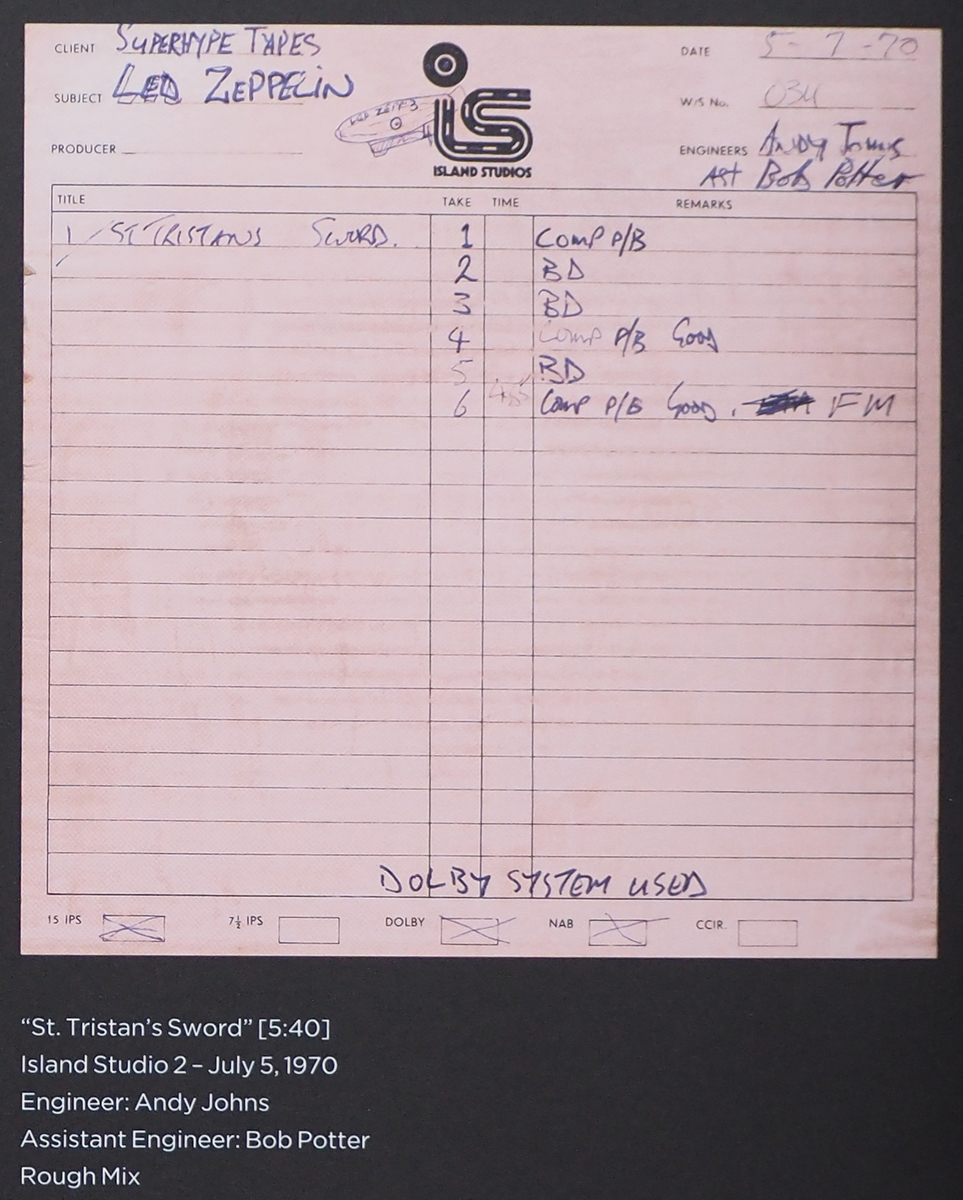 CLIENT SUPERHYPE TAPES
DATE 5-7-70
SUBJECT LED ZEPPELIN
W/S No. 034
iS
ISLAND STUDIOS
PRODUCER
ENGINEERS ANDY Johns
AST Bob Potter
TITLE TAKE TIME REMARKS
1 ST TRISTANS SWORD. 1 COMP P/B
2 BD
3 BD
4 Comp P/B Good
5 BD
6 Comp P/B Good. FM
DOLBY SYSTEM USED
15 IPS 7½ IPS DOLBY NAB CCIR.
“St. Tristan’s Sword” [5:40]
Island Studio 2 – July 5, 1970
Engineer: Andy Johns
Assistant Engineer: Bob Potter
Rough Mix